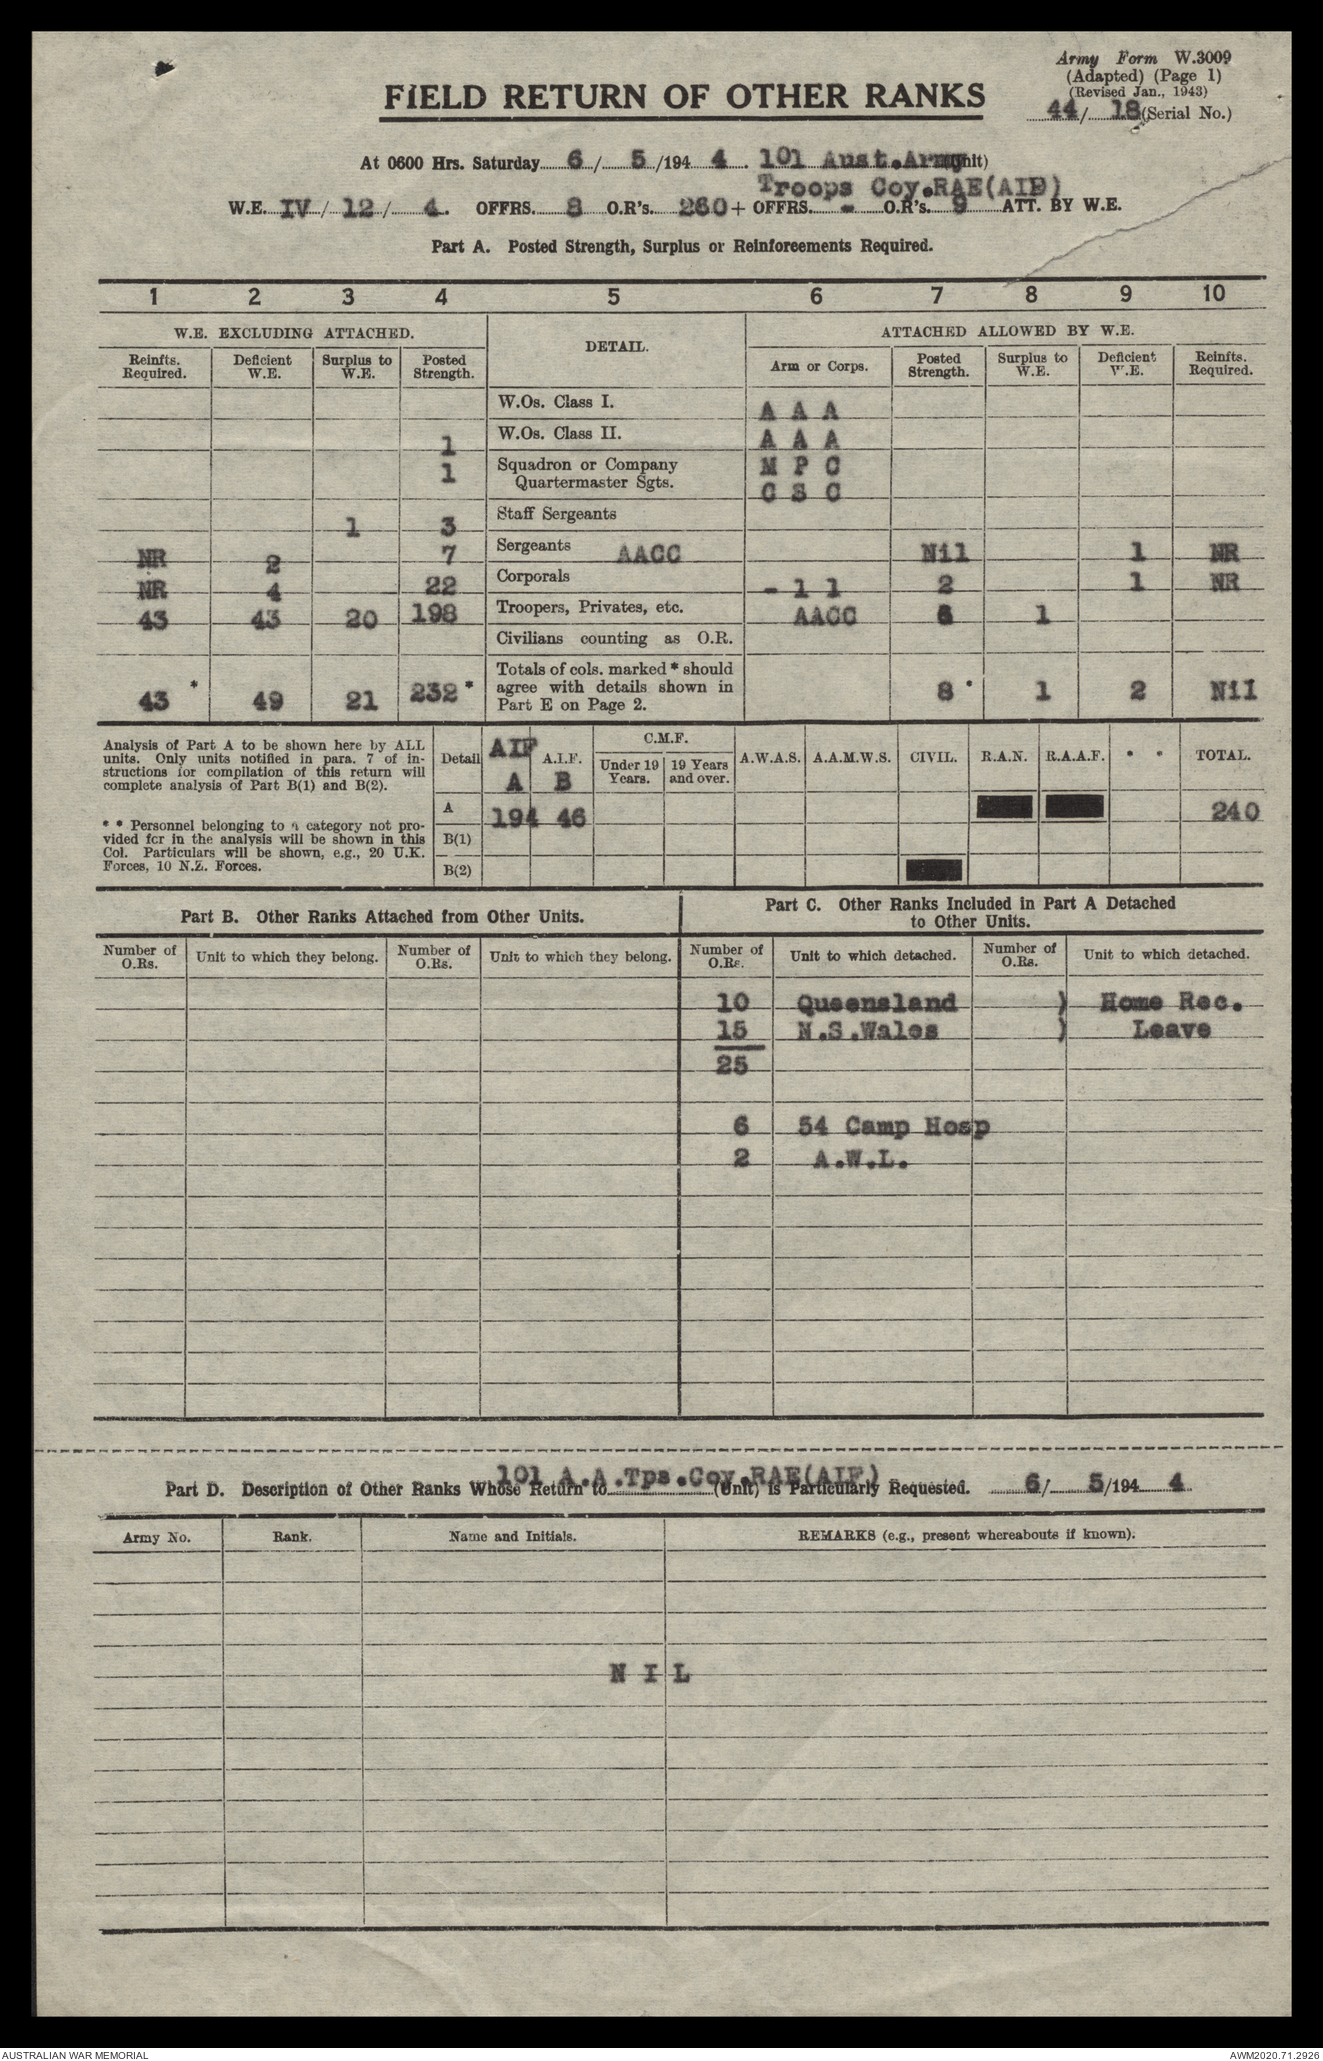 Army Form W.3009
(Adapted) (Page 1)
(Revised Jan., 1943)
44/ 18 (Serial No.)
FIELD RETURN OF OTHER RANKS
At 0600 Hrs. Saturday 6 / 5 /194 4. 101 Aust.Army (Unit)
Troops Coy.RAE(AIF)
W.E. IV / 12 / 4. OFFRS. 8 O.R's. 260 + OFFRS. - O.R's. 9 ATT. BY W.E.
Part A. Posted Strength, Surplus or Reinforcements Required.
1 2 3 4 5 6 7 8 9 10
W.E. EXCLUDING ATTACHED. DETAIL. ATTACHED ALLOWED BY W.E.
Reinfts. Required. Deficient W.E. Surplus to W.E. Posted Strength. Arm or Corps. Posted Strength. Surplus to W.E. Deficient W.E. Reinfts. Required.
W.Os. Class I. A A A
1 W.Os. Class II. A A A
1 Squadron or Company Quartermaster Sgts. M P C
C S C
1 3 Staff Sergeants
NR 2 7 Sergeants AACC Nil 1 NR
NR 4 22 Corporals - 1 1 2 1 NR
43 43 20 198 Troopers, Privates, etc. AACC 6 1
Civilians counting as O.R.
43 * 49 21 232 * Totals of cols. marked * should agree with details shown in Part E on Page 2. 8 * 1 2 Nil
Analysis of Part A to be shown here by ALL
units. Only units notified in para. 7 of in-
structions for compilation of this return will
complete analysis of Part B(1) and B(2).
* * Personnel belonging to a category not pro-
vided for in the analysis will be shown in this
Col. Particulars will be shown, e.g., 20 U.K.
Forces, 10 N.Z. Forces.
Detail AIF A A.I.F. B C.M.F. Under 19 Years. 19 Years and over. A.W.A.S. A.A.M.W.S. CIVIL. R.A.N. R.A.A.F. * * TOTAL.
A 194 46 240
B(1)
B(2)
Part B. Other Ranks Attached from Other Units.
Part C. Other Ranks Included in Part A Detached
to Other Units.
Number of O.Rs. Unit to which they belong. Number of O.Rs. Unit to which they belong. Number of O.Rs. Unit to which detached. Number of O.Rs. Unit to which detached.
10 Queensland ) Home Rec.
15 N.S.Wales ) Leave
25
6 54 Camp Hosp
2 A.W.L.
101 A.A.Tps.Coy.RAE(AIF)
Part D. Description of Other Ranks Whose Return to (Unit) is Particularly Requested. 6/ 5/194 4
Army No. Rank. Name and Initials. REMARKS (e.g., present whereabouts if known).
N I L
AUSTRALIAN WAR MEMORIAL
AWM2020.71.2926